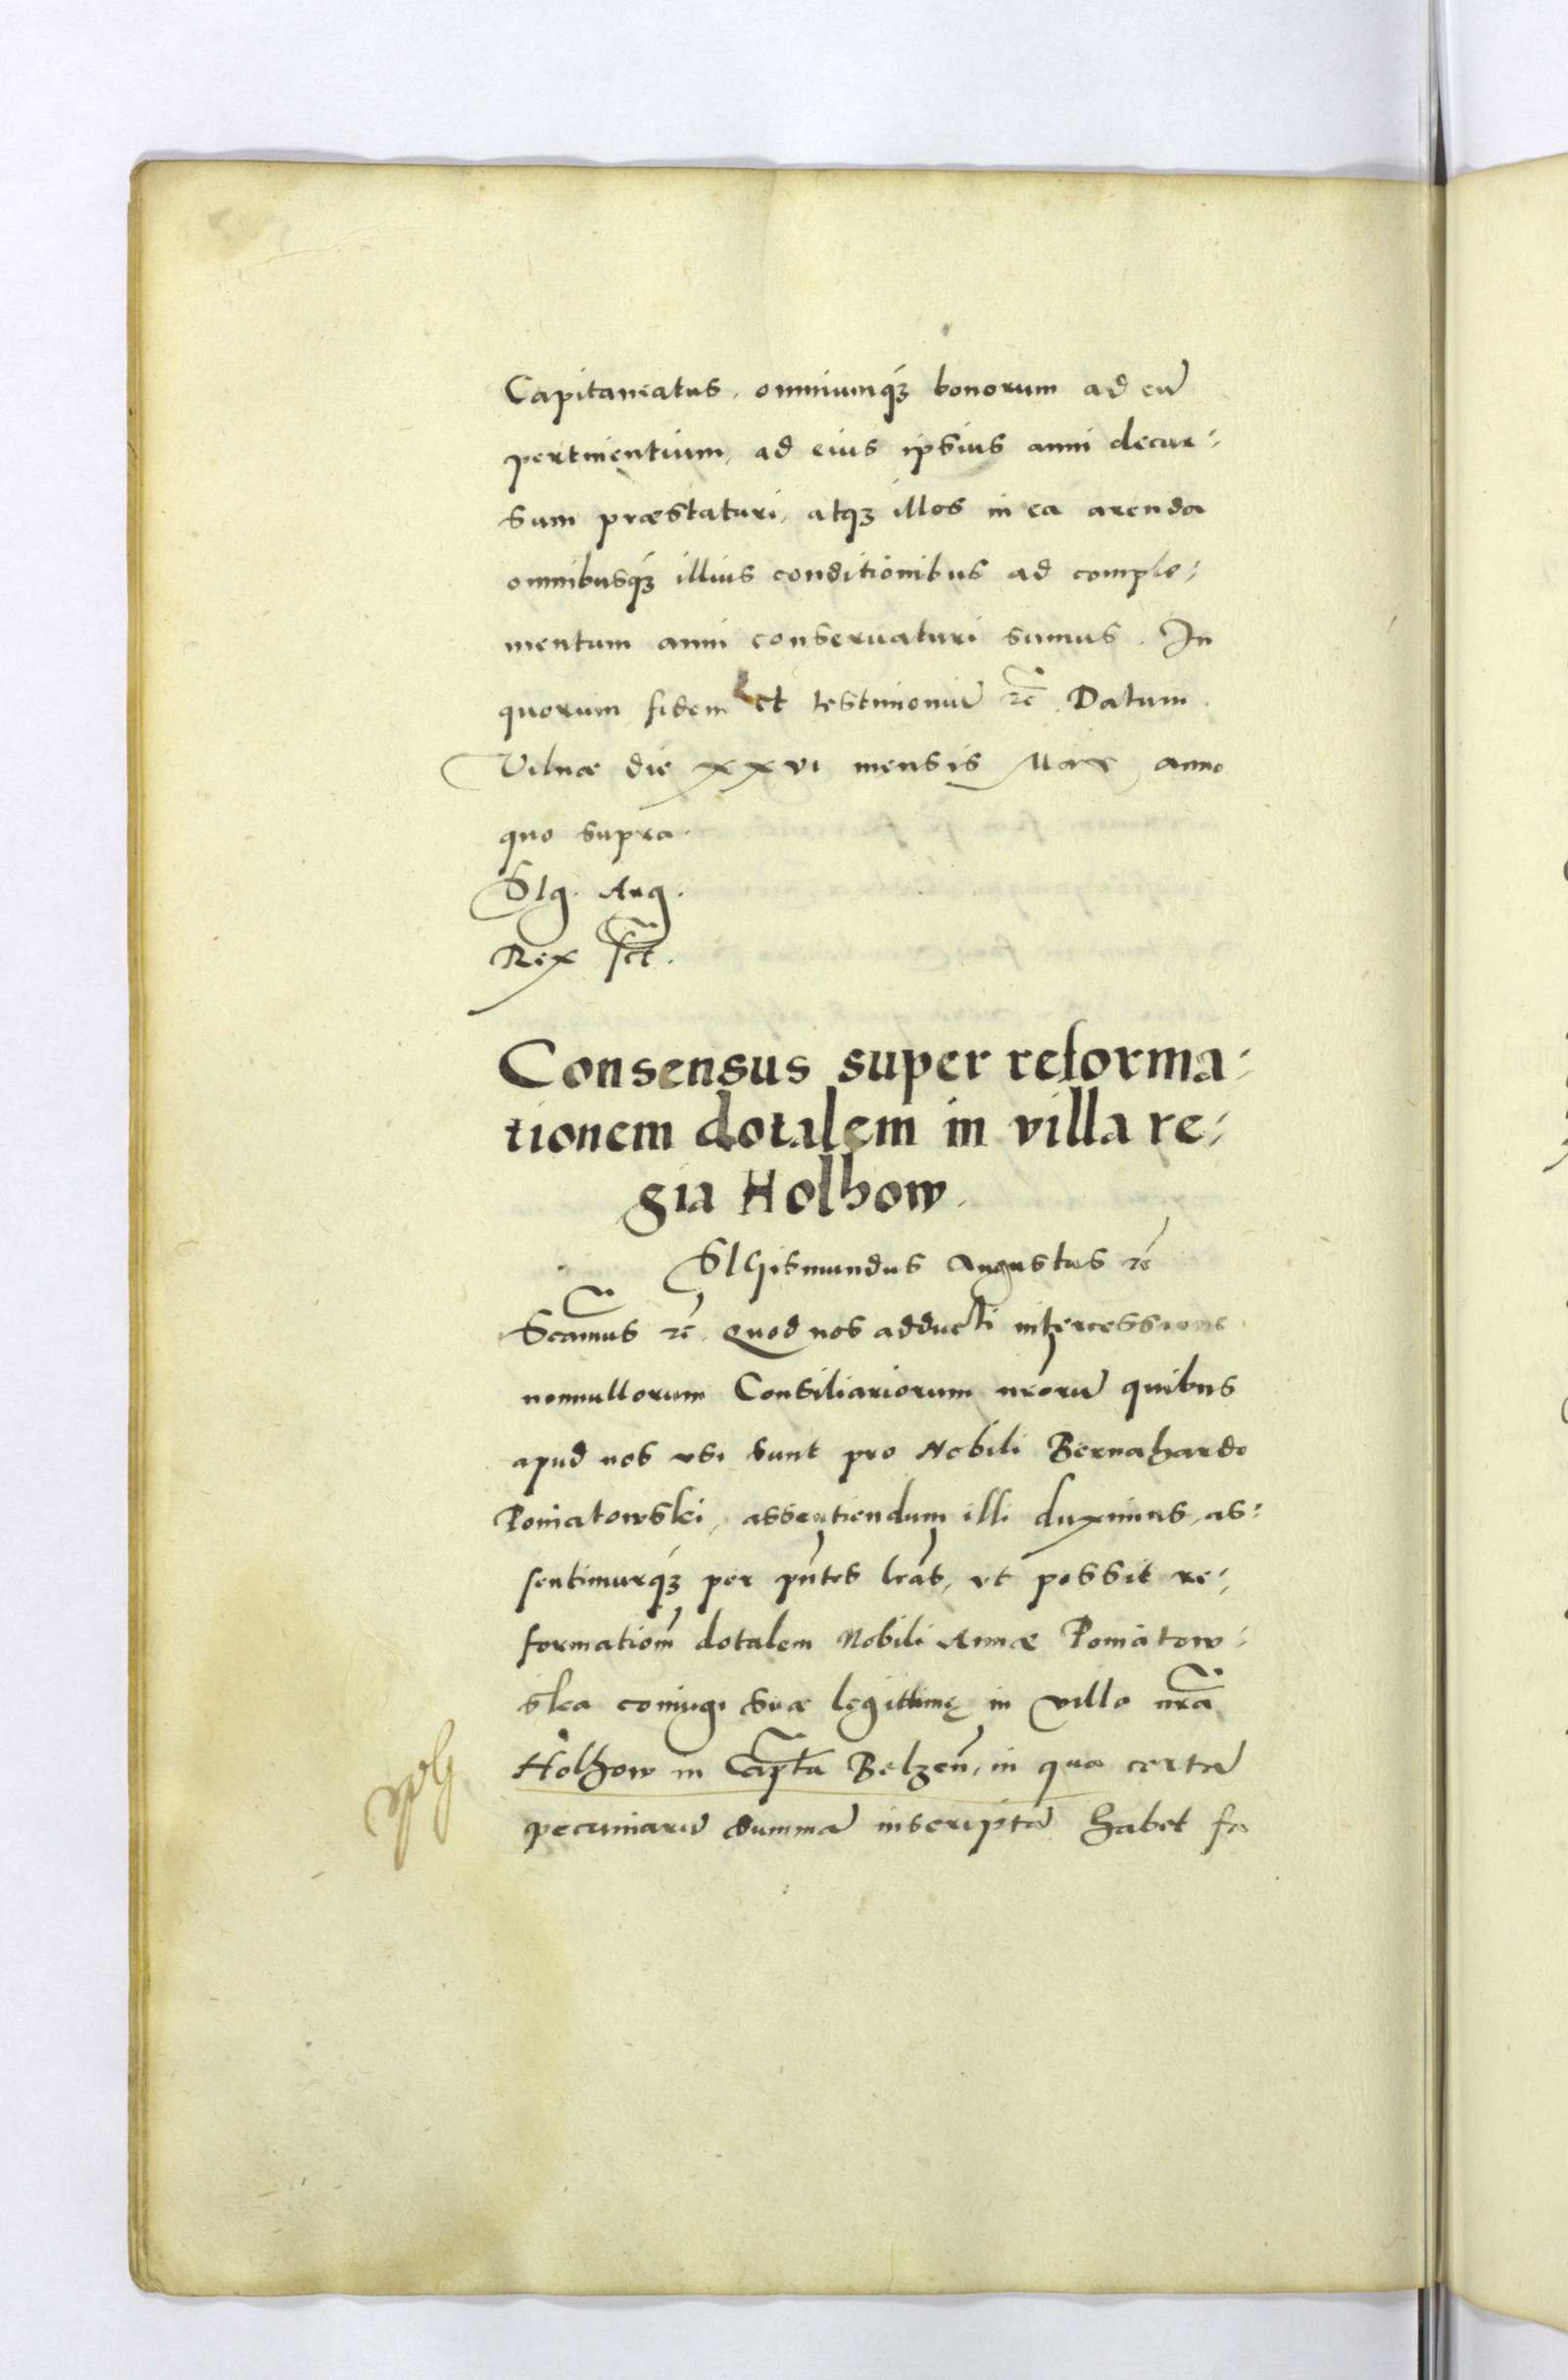 Capitaneatus, omniumq́ꝫ bonorum ad eū
pertinentium, ad eius ipsius anni decur:
sum præstaturi, atqꝫ illos in ea arenda
omnibusq́ꝫ illius conditionibus ad comple:
mentum anni conseruaturi sumus. In
quorum fidem et testimoniū ⁊c̃. Datum
Vilnæ die xxvi mensis anno
quo supra.
SIg. Aug.
Rex s̃ct.
Consensus super reforma:
tionem dotalem in villa re:
gia Holhow.
SIGismundus Augustus ⁊c̃
S̃camus ⁊c̃. Quod nos adducti intercessione
nonnullorum Consiliariorum nr̃orū quibus
apud nos vsi sunt pro Nobili Bernahardo
Poniatowski, assentiendum illi duximus, as:
sentimurq́ꝫ per pñtes lr̃as, vt possit re:
formationẽ dotalem Nobili Annæ Poniatow:
ska coniugi suæ legittimę in villa nr̃a
Holhow in Capt̃u Belzeñ, in qua certā
pecuniarū summā inscriptā habet fa